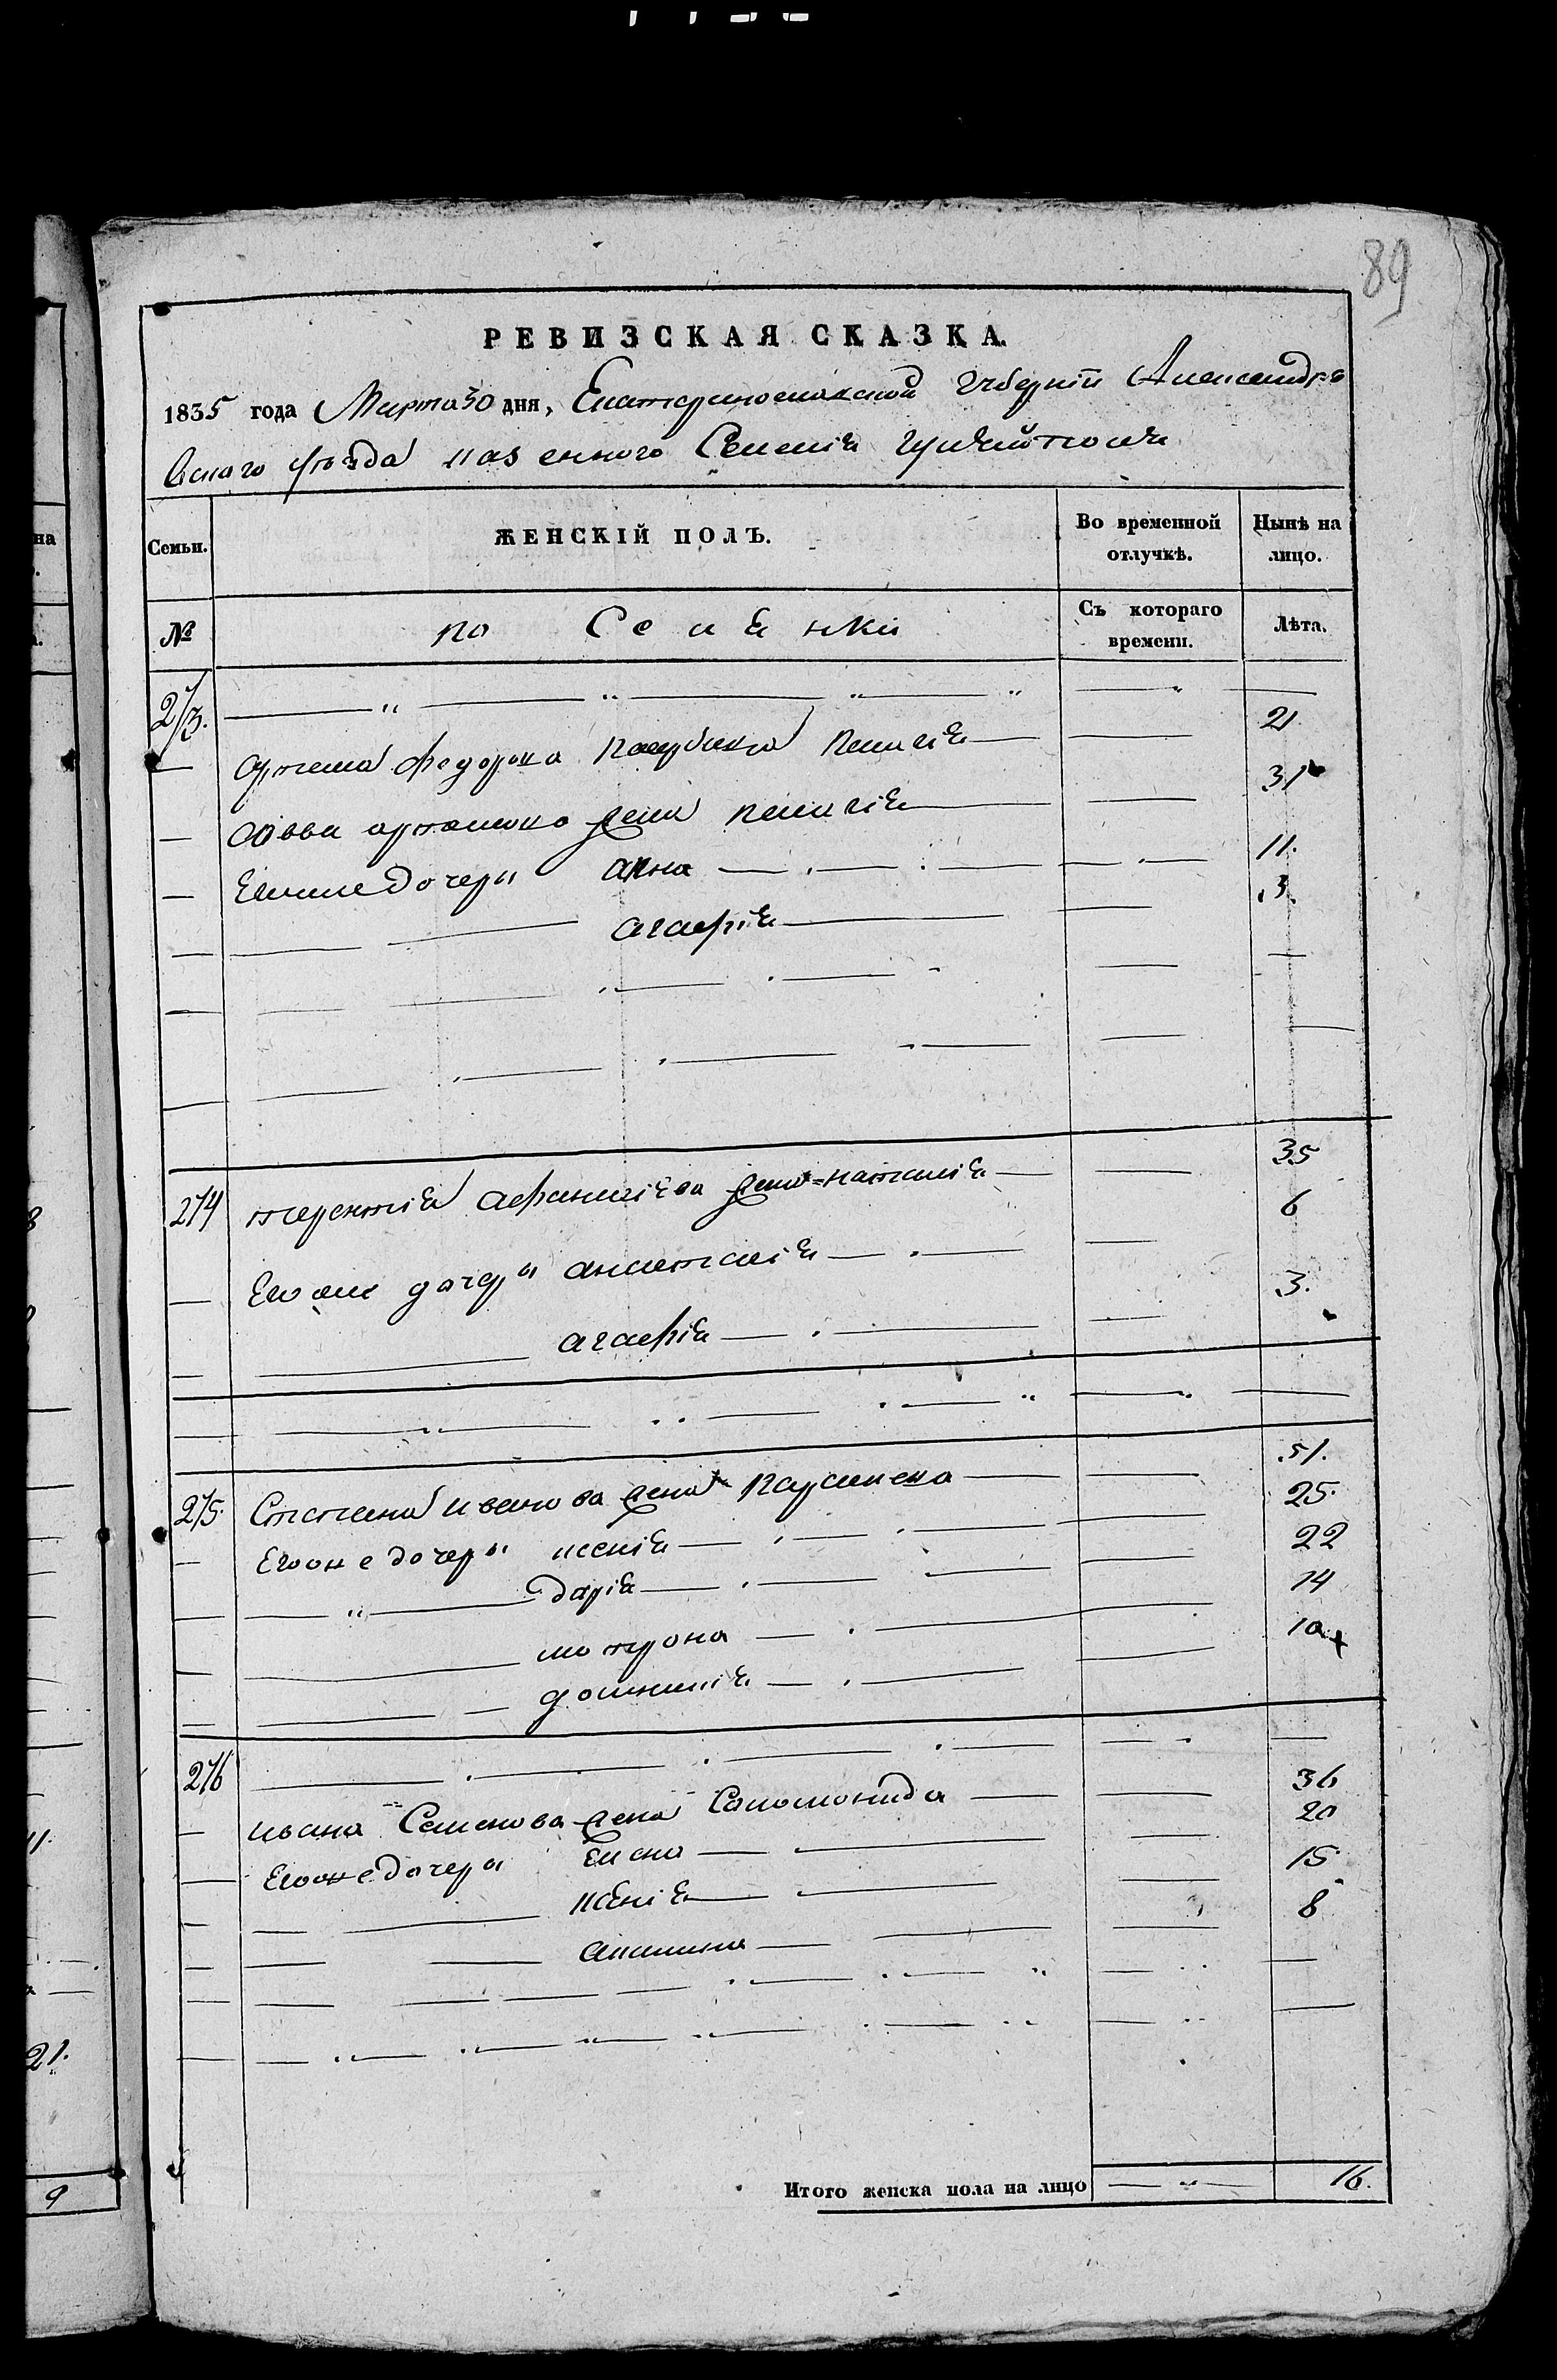 89
РЕВИЗСКАЯ СКАЗКА.
1835 года Марта 30 дня, Екатеринославской Губерніи Александро
вскаго уезда казенного Селенія Гуляйполя
Семьи. ЖЕНСКІЙ ПОЛЪ. Во временной отлучкѣ. Нынѣ на лицо.
№ Съ котораго времени. Лѣта.
273.
Артема Федорова Пелагія 21
Савви артемова жена пелагія 31
Его же дочери анна 11.
агафія 3.
274 терентія афанасіева жена наталія 35
Его же дочери анастасія 6
агафія 3.
275. Степана иванова жена параскева 51.
Его же дочери ксенія 25.
дарія 22
мотрона 14
домникія 10
276
ивана Семенова жена Соломонида 36
Его же дочери Елена 20
ксенія 15
акилина 8
Итого женска пола на лицо 16.
21.
9